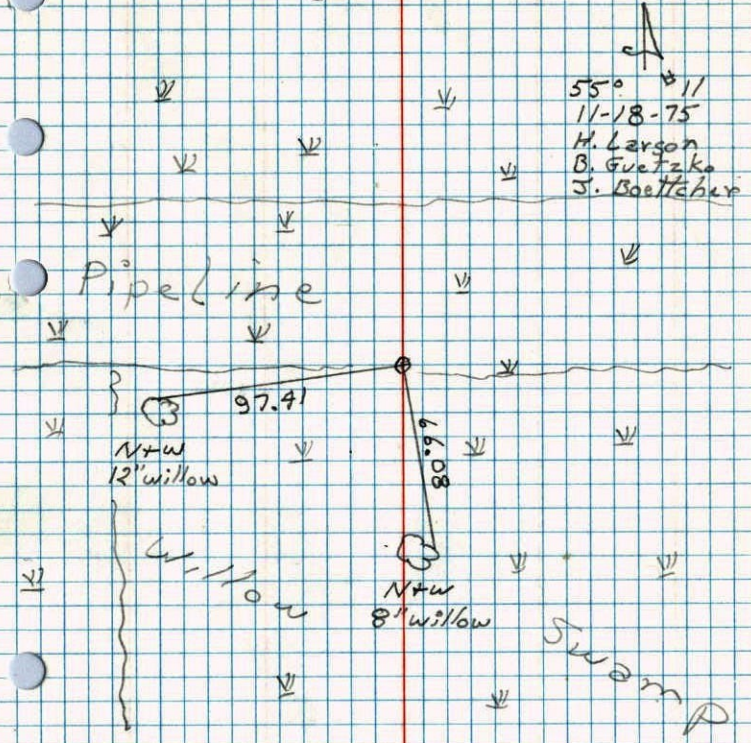 55° #11
11-18-75
H. Larson
B. Guetzko
J. Boettcher
Pipeline
97.41
66.08
N+W
12" willow
Willow
N+W
8" willow
Swamp